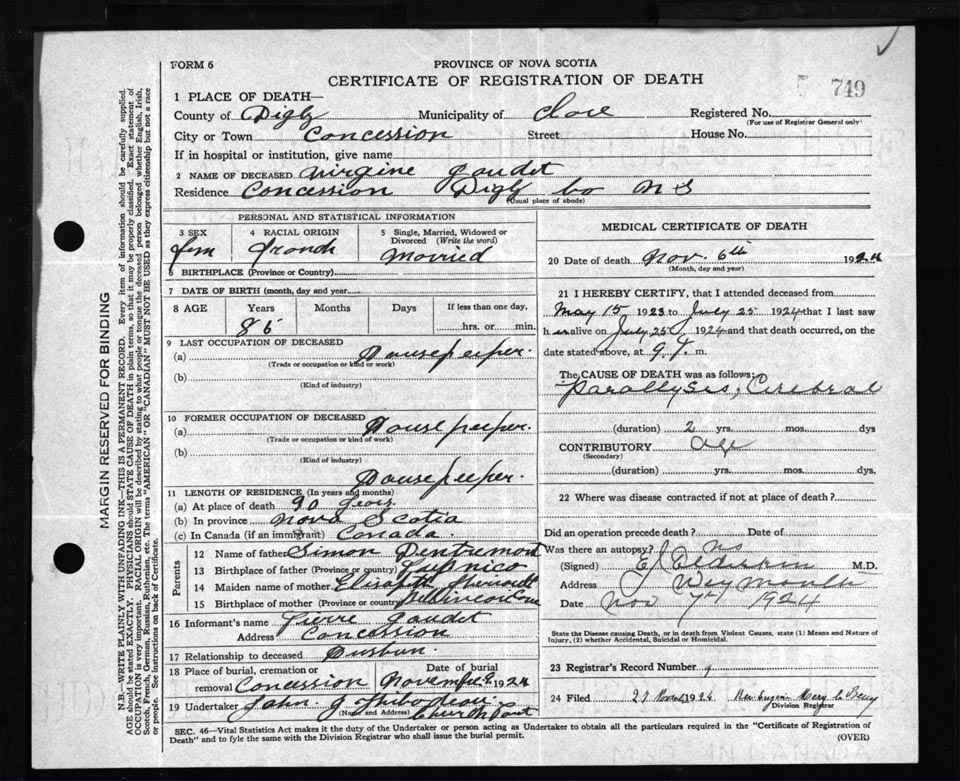 FORM 6
PROVINCE OF NOVA SCOTIA
CERTIFICATE OF REGISTRATION OF DEATH
749
1 PLACE OF DEATH—
County of Digby Municipality of Clare Registered No.
(For use of Registrar General only)
City or Town Concession Street House No.
If in hospital or institution, give name
2 NAME OF DECEASED Virgine Gaudet
Residence Concession Digby Co N S
(Usual place of abode)
PERSONAL AND STATISTICAL INFORMATION
3 SEX 4 RACIAL ORIGIN 5 Single, Married, Widowed or Divorced (Write the word)
fem French Married
6 BIRTHPLACE (Province or Country)
7 DATE OF BIRTH (month, day and year)
8 AGE Years Months Days If less than one day,
86 hrs. or min.
9 LAST OCCUPATION OF DECEASED
(a) Housekeeper.
(Trade or occupation or kind or work)
(b)
(Kind of industry)
10 FORMER OCCUPATION OF DECEASED
(a) Housekeeper.
(Trade or occupation or kind of work)
(b)
(Kind of industry)
Housekeeper.
11 LENGTH OF RESIDENCE (In years and months)
(a) At place of death 90 years
(b) In province Nova Scotia
(c) In Canada (if an immigrant) Canada.
Parents
12 Name of father Simon Dentremont
13 Birthplace of father (Province or country) Pupnico
14 Maiden name of mother Elisabeth
15 Birthplace of mother (Province or country)
16 Informant's name Pierre Gaudet
Address Concession
17 Relationship to deceased Husbun.
18 Place of burial, cremation or removal Concession Date of burial November 8 1924
19 Undertaker John J Thibodeau
(Name and Address) Church Point
MEDICAL CERTIFICATE OF DEATH
20 Date of death Nov. 6th 1924
(Month, day and year)
21 I HEREBY CERTIFY, that I attended deceased from
May 15 1923 to July 25 1924 that I last saw
h er alive on July 25 1924 and that death occurred, on
date stated above, at 9 P. m.
The CAUSE OF DEATH was as follows:
Parallysis, Cerebral
(duration) 2 yrs. mos. dys
CONTRIBUTORY Age
(Secondary)
(duration) yrs. mos. dys.
22 Where was disease contracted if not at place of death?
Did an operation precede death? Date of
Was there an autopsy? no
(Signed) E Elderkin M.D.
Address Weymouth
Date Nov 7th 1924
State the Disease causing Death, or in death from Violent Causes, state (1) Means and Nature of Injury, (2) whether Accidental, Suicidal or Homicidal.
23 Registrar's Record Number 9
24 Filed 27 Novem 1924
Division Registrar
SEC. 46—Vital Statistics Act makes it the duty of the Undertaker or person acting as Undertaker to obtain all the particulars required in the "Certificate of Registration of
Death" and to fyle the same with the Division Registrar who shall issue the burial permit.
(OVER)
MARGIN RESERVED FOR BINDING
N.B.—WRITE PLAINLY WITH UNFADING INK—THIS IS A PERMANENT RECORD. Every item of information should be carefully supplied.
AGE should be stated EXACTLY. PHYSICIANS should STATE CAUSE OF DEATH in plain terms, so that it may be properly classified. Exact statement of
OCCUPATION is very important. RACIAL ORIGIN will be described by stating to what people or tongue the deceased person belonged whether English, Irish,
Scotch, French, German, Russian, Ruthenian, etc. The terms "AMERICAN" OR "CANADIAN" MUST NOT BE USED as they express citizenship but not a race
or people. See instructions on back of Certificate.